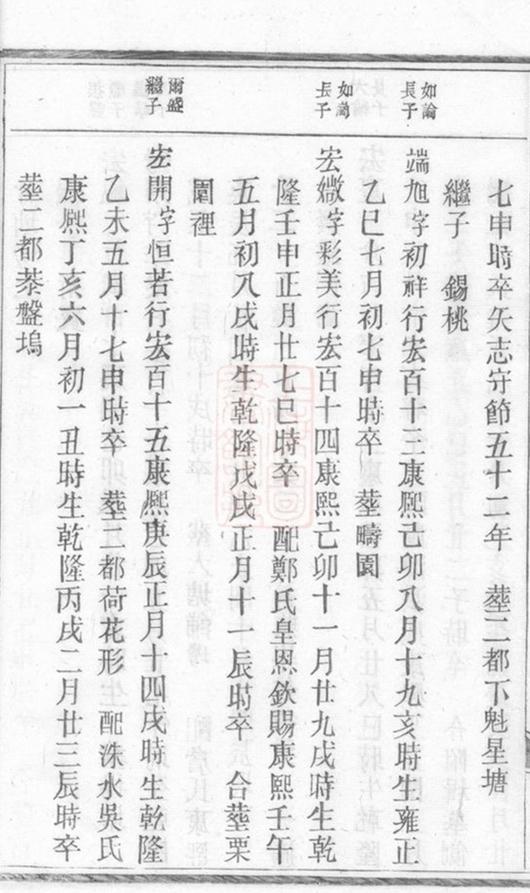 七申時卒矢志守節五十二年　塟二都下魁星塘
繼子　錫桃
如論
長子
端旭字初祥行宏百十三康熙己卯八月十九亥時生雍正
乙巳七月初七申時卒　塟疇園
如
長子
宏媺字彩美行宏百十四康熙己卯十一月廿九戌時生乾
隆壬申正月廿七巳時卒　配鄭氏皇恩欽賜康熙壬午
五月初八戌時生乾隆戊戌正月十一辰時卒　合塟栗
園裡
爾盛
繼子
宏開字恒若行宏百十五康熙庚辰正月十四戌時生乾隆
乙未五月十七申時卒　塟二都荷花形　配洙水吳氏
康熙丁亥六月初一丑時生乾隆丙戌二月廿三辰時卒
塟二都棊盤塢